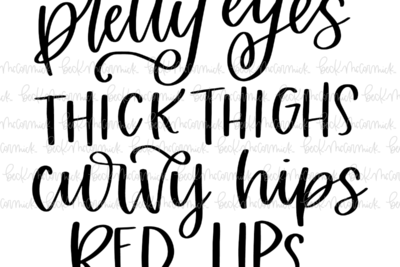 pretty eyes
THICK THIGHS
curvy hips
RED LIPS